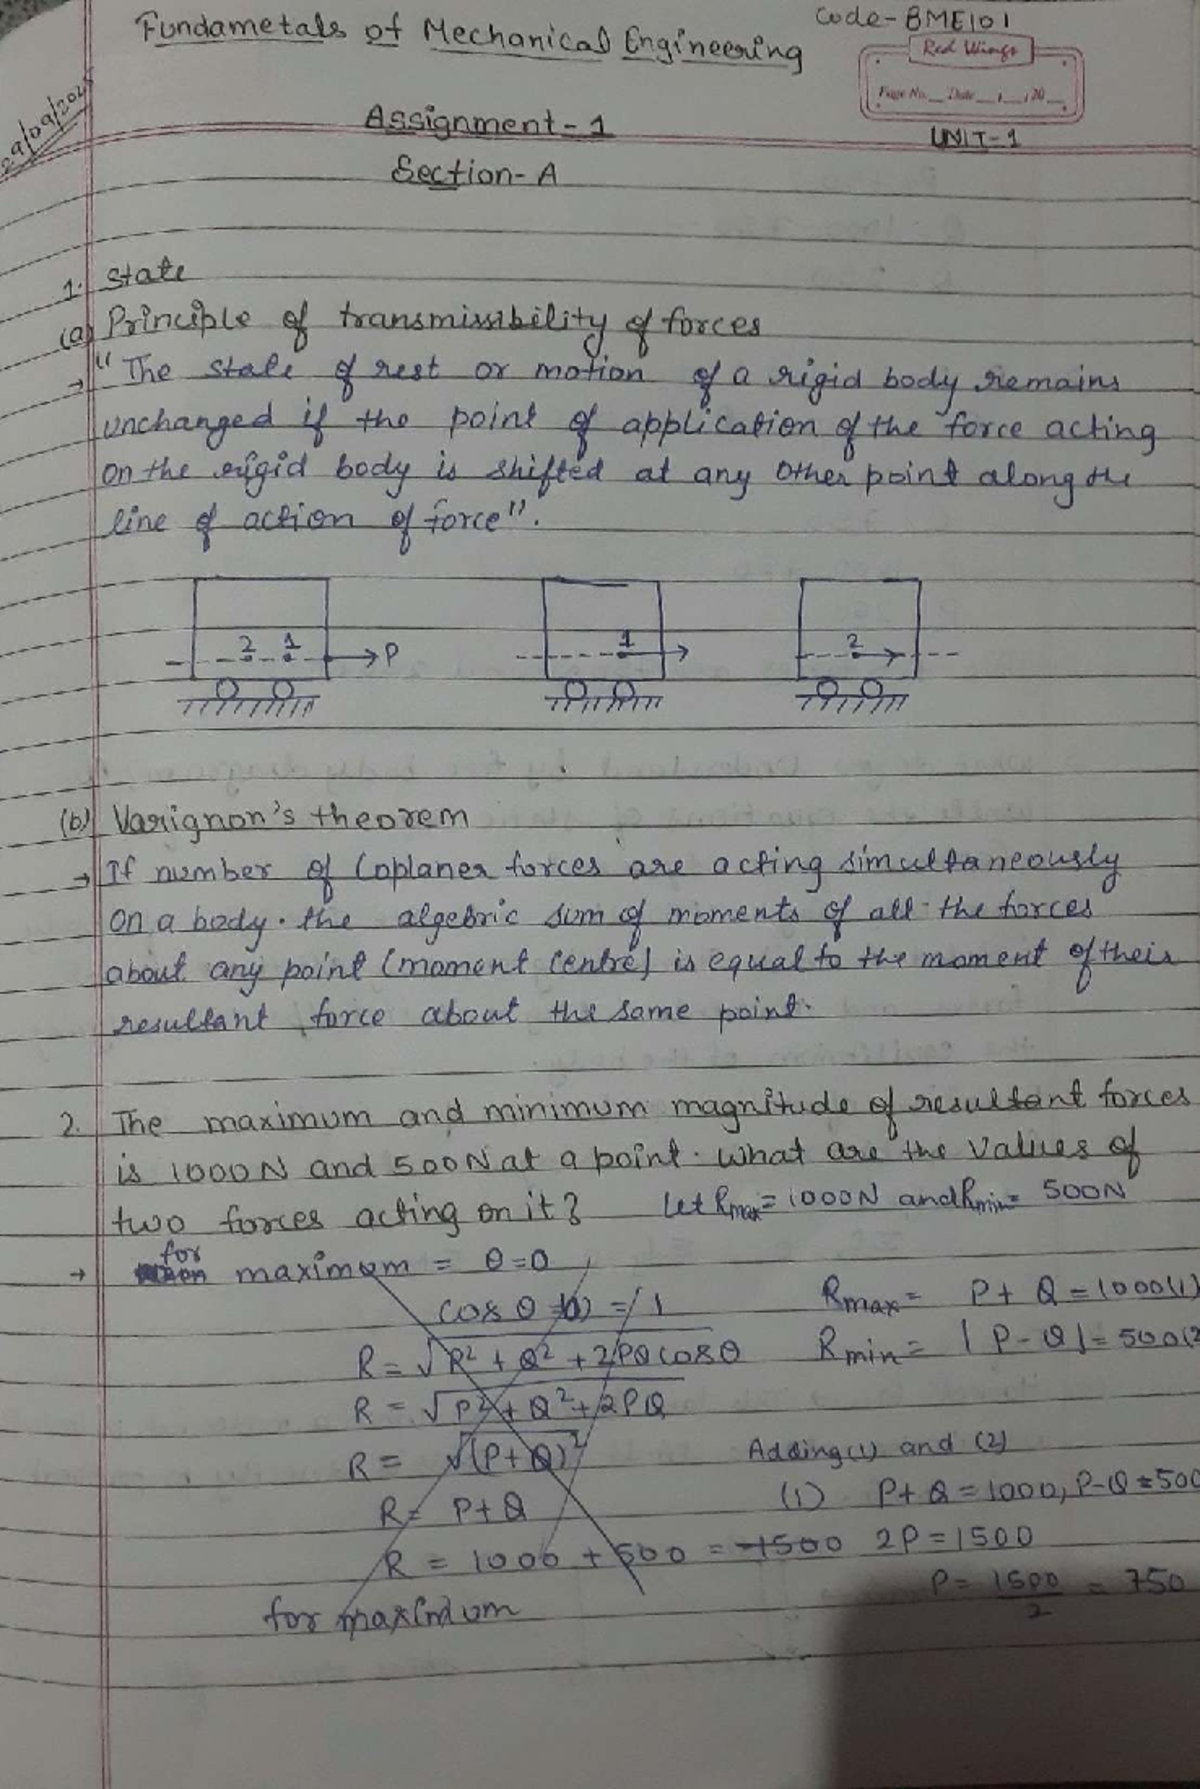 Code-BME101
Fundametals of Mechanical Engineering
Red Wings
Page No. Date / /20
29/09/202
Assignment-1
UNIT-1
Section-A
1. State
(a) Principle of transmissibility of forces
→ "The state of rest or motion of a rigid body remains
unchanged if the point of application of the force acting
on the rigid body is shifted at any other point along the
line of action of force".
2 1 P
1
2
(b) Varignon's theorem
→ If number of Coplaner forces are acting simultaneously
on a body. the algebric sum of moments of all the forces
about any point (moment Centre) is equal to the moment of their
resultant force about the same point.
2. The maximum and minimum magnitude of resultant forces
is 1000N and 500N at a point. What are the values of
two forces acting on it? Let Rmax = 1000N and Rmin = 500N
→ for maximum = θ=0
cos θ = 1
Rmax = P + Q = 1000 (1)
R = √R² + Q² + 2PQ cos θ
Rmin = |P - Q| = 500 (2
R = √P² + Q² + 2PQ
R = √(P+Q)²
Adding (1) and (2)
R = P+Q
(1) P+Q = 1000, P-Q = 500
R = 1000 + 500 = 1500 2P = 1500
P = 1500/2 = 750
for maximum